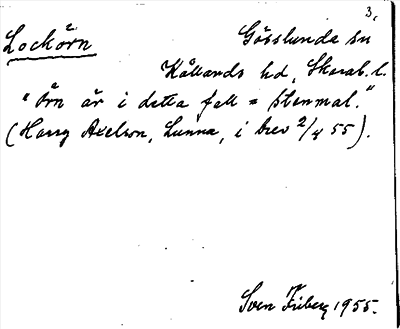 3.
Lockörn Gösslunda sn
Kållands hd, Skarab. l.
"Örn är i detta fall = stenmal."
(Harry Axelson, Lunna, i brev 2/4 55).
Sven Friberg 1955.